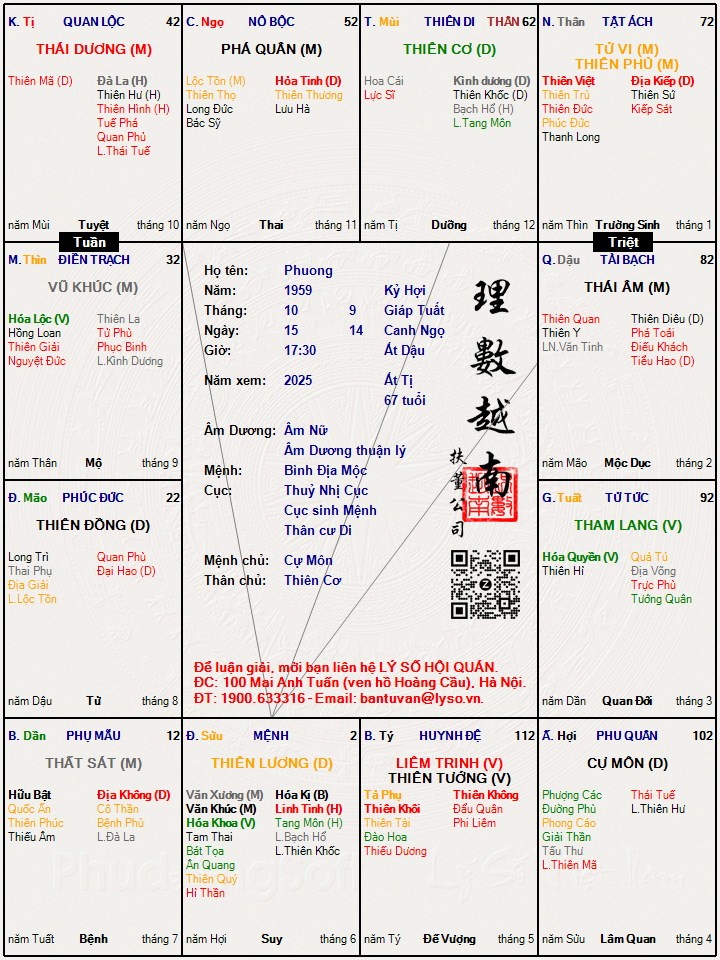 K. Tị QUAN LỘC 42
THÁI DƯƠNG (M)
Thiên Mã (D) Đà La (H)
Thiên Hư (H)
Thiên Hình (H)
Tuế Phá
Quan Phủ
L.Thái Tuế
năm Mùi Tuyệt tháng 10
C. Ngọ NÔ BỘC 52
PHÁ QUÂN (M)
Lộc Tồn (M) Hỏa Tinh (D)
Thiên Thọ Thiên Thương
Long Đức Lưu Hà
Bác Sỹ
năm Ngọ Thai tháng 11
T. Mùi THIÊN DI THÂN 62
THIÊN CƠ (D)
Hoa Cái Kình dương (D)
Lực Sĩ Thiên Khốc (D)
Bạch Hổ (H)
L.Tang Môn
năm Tị Dưỡng tháng 12
N. Thân TẬT ÁCH 72
TỬ VI (M)
THIÊN PHỦ (M)
Thiên Việt Địa Kiếp (D)
Thiên Trù Thiên Sứ
Thiên Đức Kiếp Sát
Phúc Đức
Thanh Long
năm Thìn Trường Sinh tháng 1
Tuần
Triệt
M. Thìn ĐIỀN TRẠCH 32
VŨ KHÚC (M)
Hóa Lộc (V) Thiên La
Hồng Loan Tử Phù
Thiên Giải Phục Binh
Nguyệt Đức L.Kình Dương
năm Thân Mộ tháng 9
Họ tên: Phuong
Năm: 1959 Kỷ Hợi
Tháng: 10 9 Giáp Tuất
Ngày: 15 14 Canh Ngọ
Giờ: 17:30 Ất Dậu
Năm xem: 2025 Ất Tị
67 tuổi
Âm Dương: Âm Nữ
Âm Dương thuận lý
Mệnh: Bình Địa Mộc
Cục: Thuỷ Nhị Cục
Cục sinh Mệnh
Thân cư Di
Mệnh chủ: Cự Môn
Thân chủ: Thiên Cơ
理數越南
扶董公司
Để luận giải, mời bạn liên hệ LÝ SỐ HỘI QUÁN.
ĐC: 100 Mai Anh Tuấn (ven hồ Hoàng Cầu), Hà Nội.
ĐT: 1900.633316 - Email: bantuvan@lyso.vn.
Q. Dậu TÀI BẠCH 82
THÁI ÂM (M)
Thiên Quan Thiên Diêu (D)
Thiên Y Phá Toái
LN.Văn Tinh Điếu Khách
Tiểu Hao (D)
năm Mão Mộc Dục tháng 2
Đ. Mão PHÚC ĐỨC 22
THIÊN ĐỒNG (D)
Long Trì Quan Phù
Thai Phụ Đại Hao (D)
Địa Giải
L.Lộc Tồn
năm Dậu Tử tháng 8
G. Tuất TỬ TỨC 92
THAM LANG (V)
Hóa Quyền (V) Quả Tú
Thiên Hỉ Địa Võng
Trực Phù
Tướng Quân
năm Dần Quan Đới tháng 3
B. Dần PHỤ MẪU 12
THẤT SÁT (M)
Hữu Bật Địa Không (D)
Quốc Ấn Cô Thần
Thiên Phúc Bệnh Phù
Thiếu Âm L.Đà La
năm Tuất Bệnh tháng 7
Đ. Sửu MỆNH 2
THIÊN LƯƠNG (D)
Văn Xương (M) Hóa Kị (B)
Văn Khúc (M) Linh Tinh (H)
Hóa Khoa (V) Tang Môn (H)
Tam Thai L.Bạch Hổ
Bát Tọa L.Thiên Khốc
Ân Quang
Thiên Quý
Hỉ Thần
năm Hợi Suy tháng 6
B. Tý HUYNH ĐỆ 112
LIÊM TRINH (V)
THIÊN TƯỚNG (V)
Tả Phụ Thiên Không
Thiên Khôi Đẩu Quân
Thiên Tài Phi Liêm
Đào Hoa
Thiếu Dương
năm Tý Đế Vượng tháng 5
Ấ. Hợi PHU QUÂN 102
CỰ MÔN (D)
Phượng Các Thái Tuế
Đường Phù L.Thiên Hư
Phong Cáo
Giải Thần
Tấu Thư
L.Thiên Mã
năm Sửu Lâm Quan tháng 4